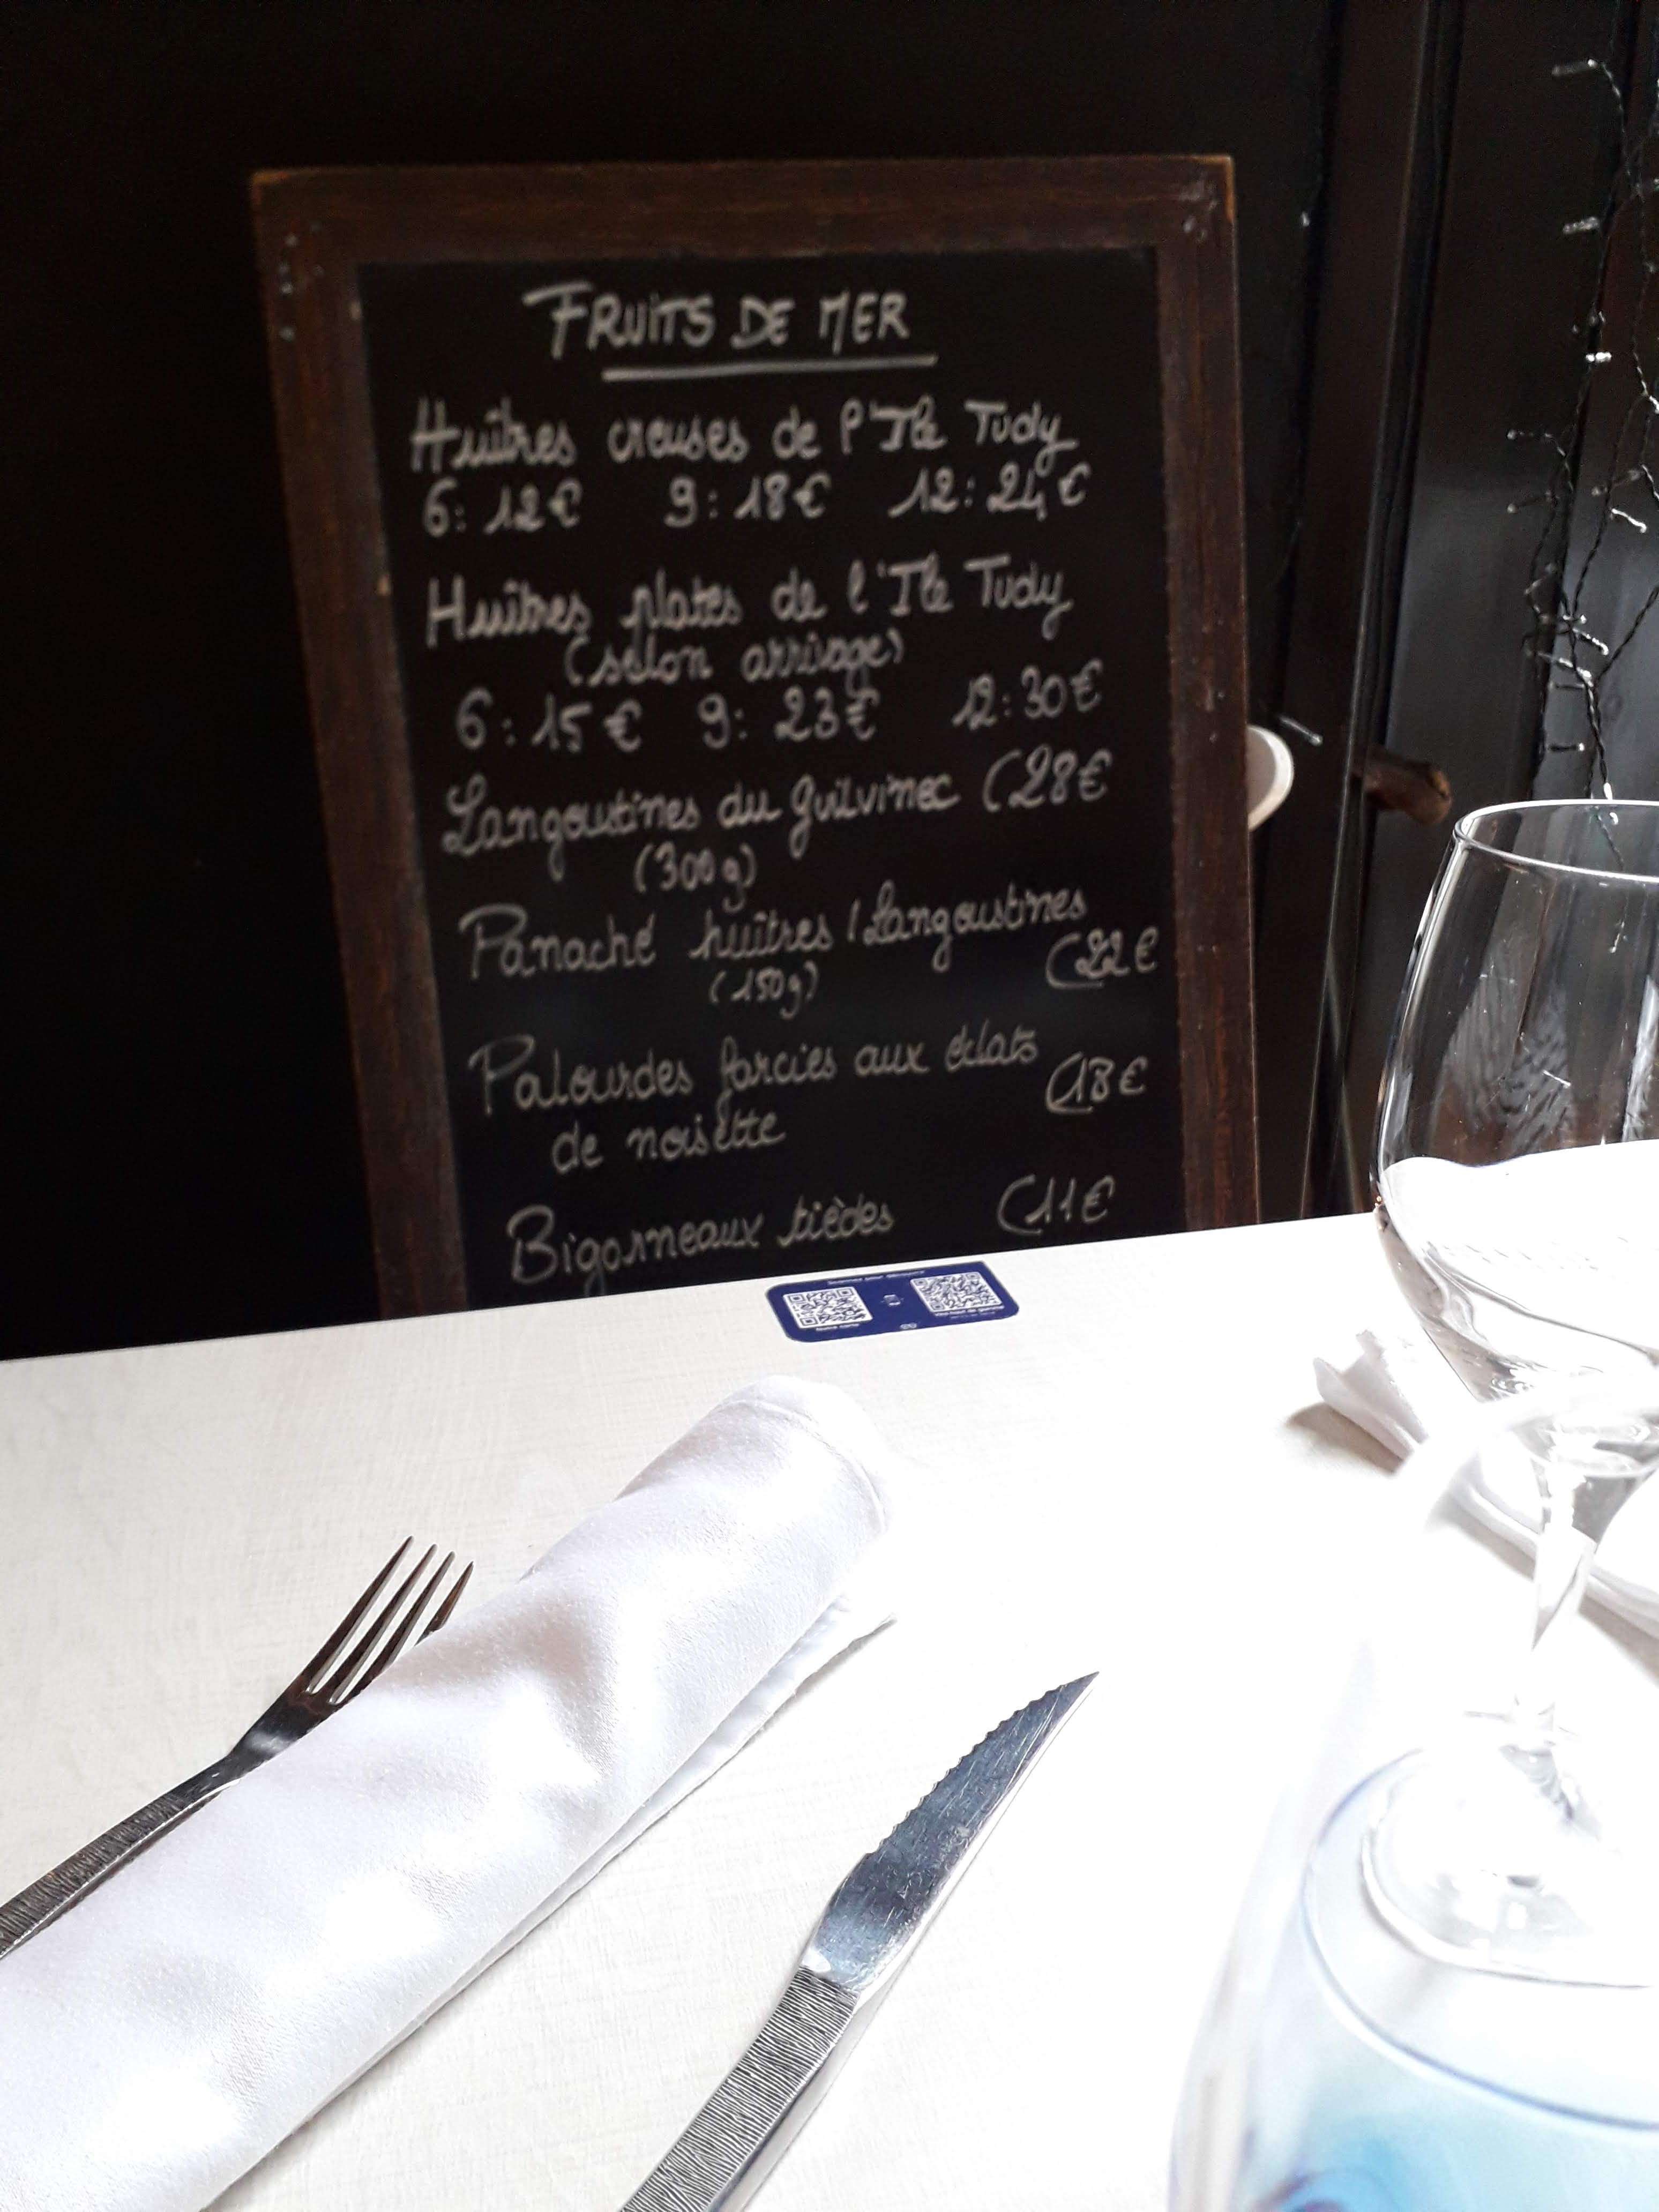 FRUITS DE MER
Huîtres creuses de l'Ile Tudy
6: 12€ 9: 18€ 12: 24€
Huîtres plates de l'Ile Tudy
(selon arrivage)
6: 15€ 9: 23€ 12: 30€
Langoustines du Guilvinec (28€
(300g)
Panaché huîtres / Langoustines
(150g) (22€
Palourdes farcies aux éclats
de noisette (18€
Bigorneaux tièdes (11€
Scannez pour découvrir
Notre carte